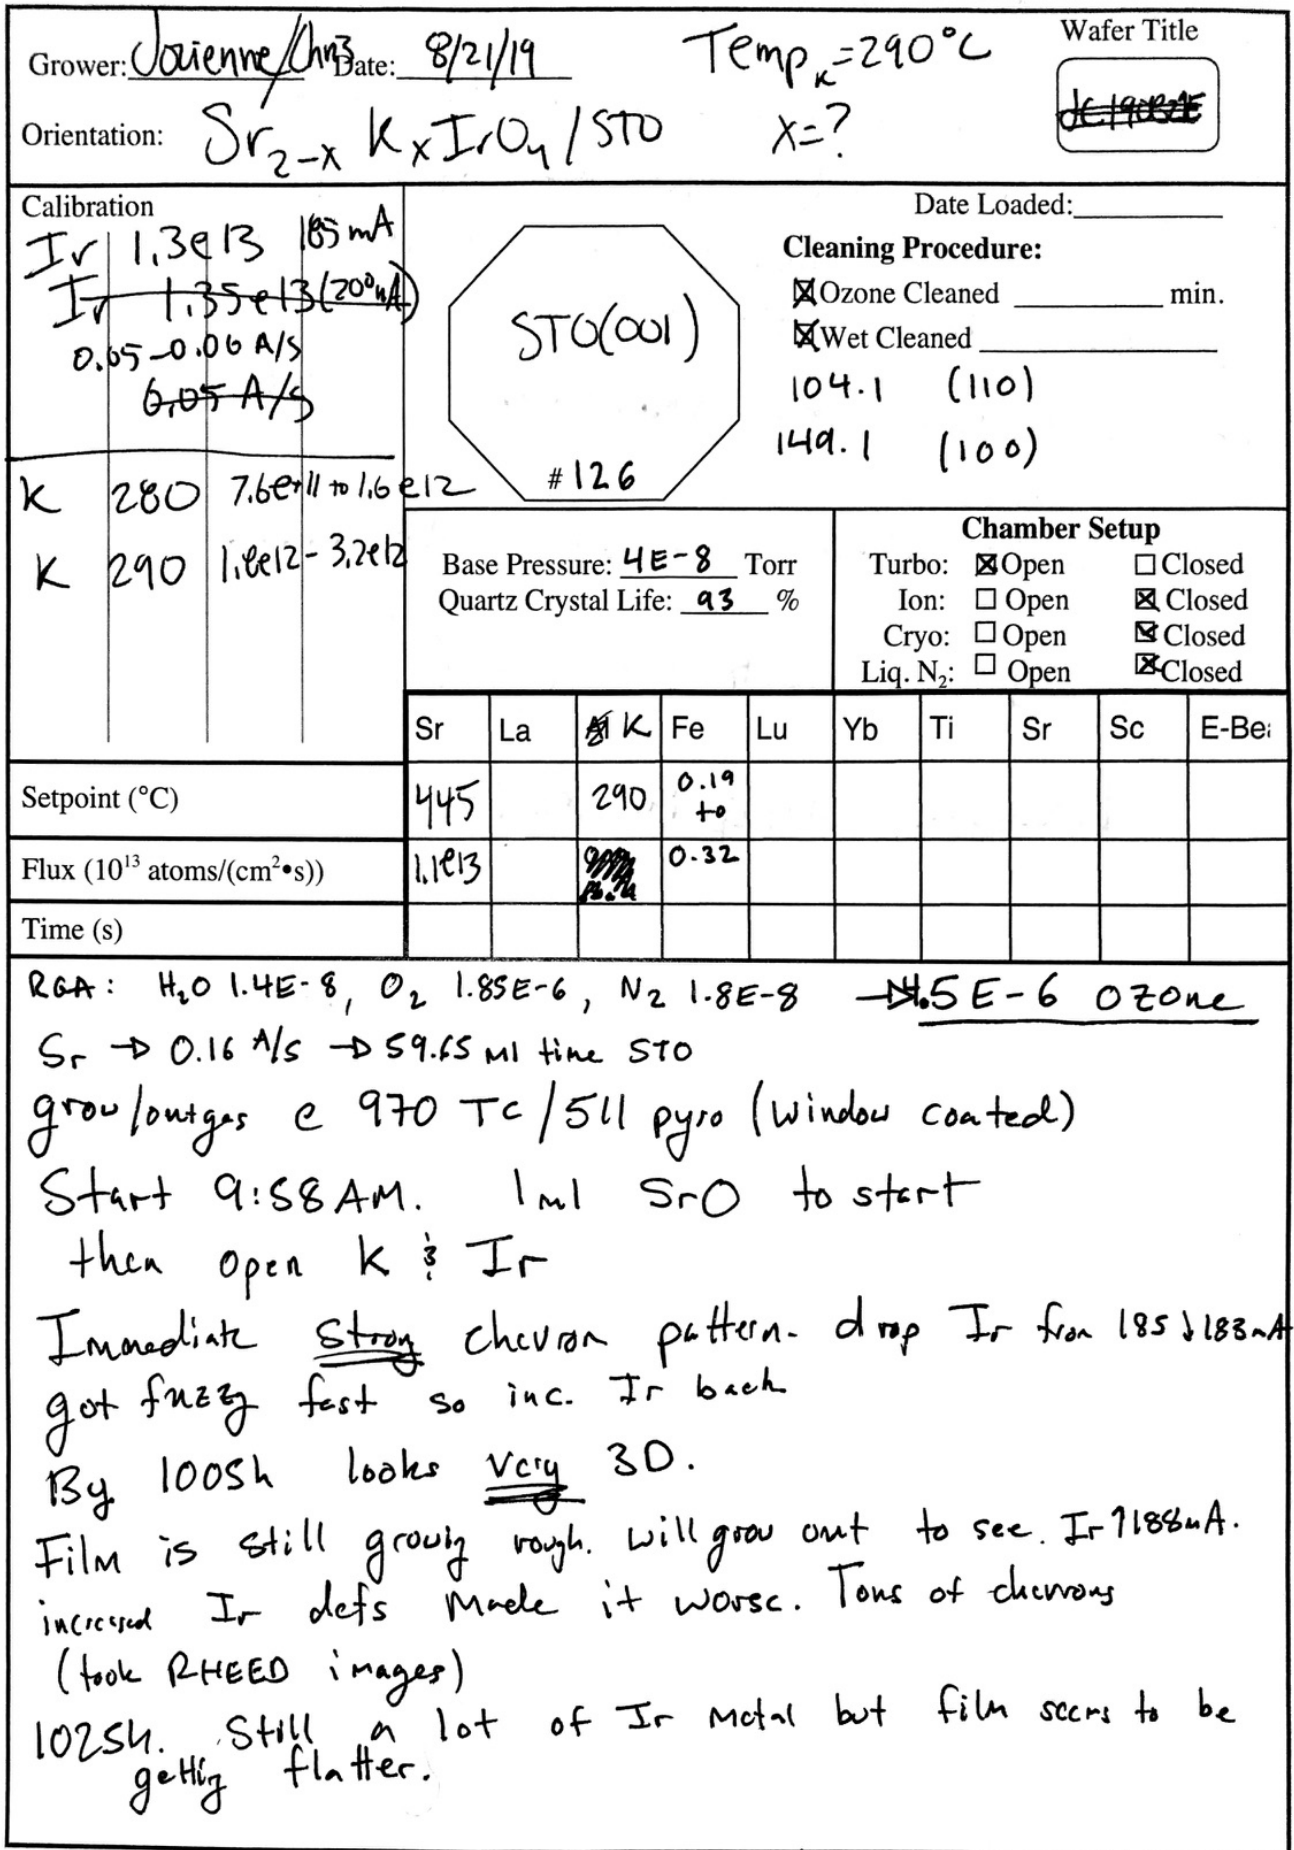 Grower: Jocienne/Chris Date: 8/21/19 Temp_K=290°C Wafer Title
Orientation: Sr2-x KxIrO4 / STO x=?
Calibration
Ir 1.3e13 185 mA
Ir 1.35e13 (200mA)
0.05-0.06 A/s
0.05 A/s
K 280 7.6e+11 to 1.6e12
K 290 1.6e12 - 3.2e12
STO(001)
#126
Date Loaded:
Cleaning Procedure:
☒ Ozone Cleaned min.
☒ Wet Cleaned
104.1 (110)
149.1 (100)
Base Pressure: 4E-8 Torr
Quartz Crystal Life: 93 %
Chamber Setup
Turbo: ☒ Open ☐ Closed
Ion: ☐ Open ☒ Closed
Cryo: ☐ Open ☒ Closed
Liq. N2: ☐ Open ☒ Closed
Sr La K Fe Lu Yb Ti Sr Sc E-Be
Setpoint (°C) 445 290 0.19 to
Flux (10^13 atoms/(cm²•s)) 1.1e13 0.32
Time (s)
RGA: H2O 1.4E-8, O2 1.85E-6, N2 1.8E-8 → 4.5E-6 ozone
Sr → 0.16 A/s → 59.65 ml time STO
grow/outgas @ 970 TC/511 pyro (window coated)
Start 9:58 AM. 1ml SrO to start
then open K & Ir
Immediate strong chevron pattern. drop Ir from 185 ↓ 183mA
got fuzzy fast so inc. Ir back
By 1005h looks very 3D.
Film is still growing rough. will grow out to see. Ir ↑188mA.
increased Ir defs made it worse. Tons of chevrons
(took RHEED images)
1025h. Still a lot of Ir metal but film seems to be
getting flatter.